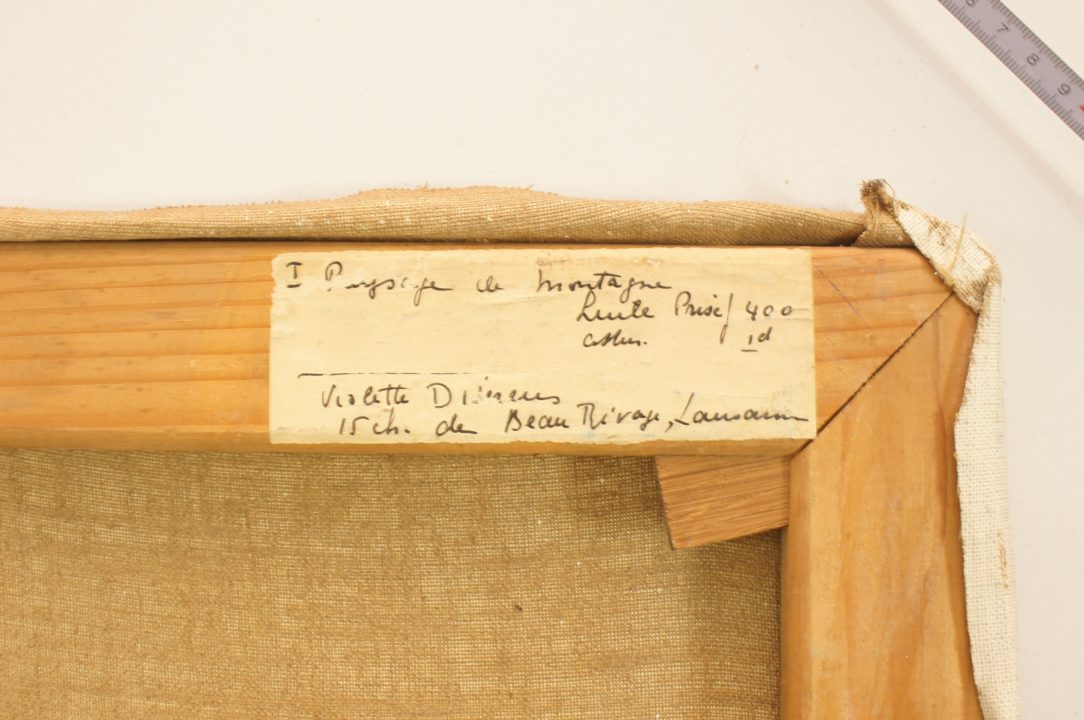 I Paysage de montagne
Huile Prix/ 400
assur. Id
Violette Diserens
15 ch. de Beau Rivage, Lausanne
6 7 8 9